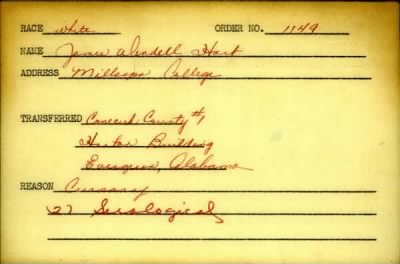 RACE white ORDER NO. 1149
NAME James Wendell Hart
ADDRESS Millsaps College
TRANSFERRED Conecuh County #1
Building
Evergreen, Alabama
REASON
27 Serological